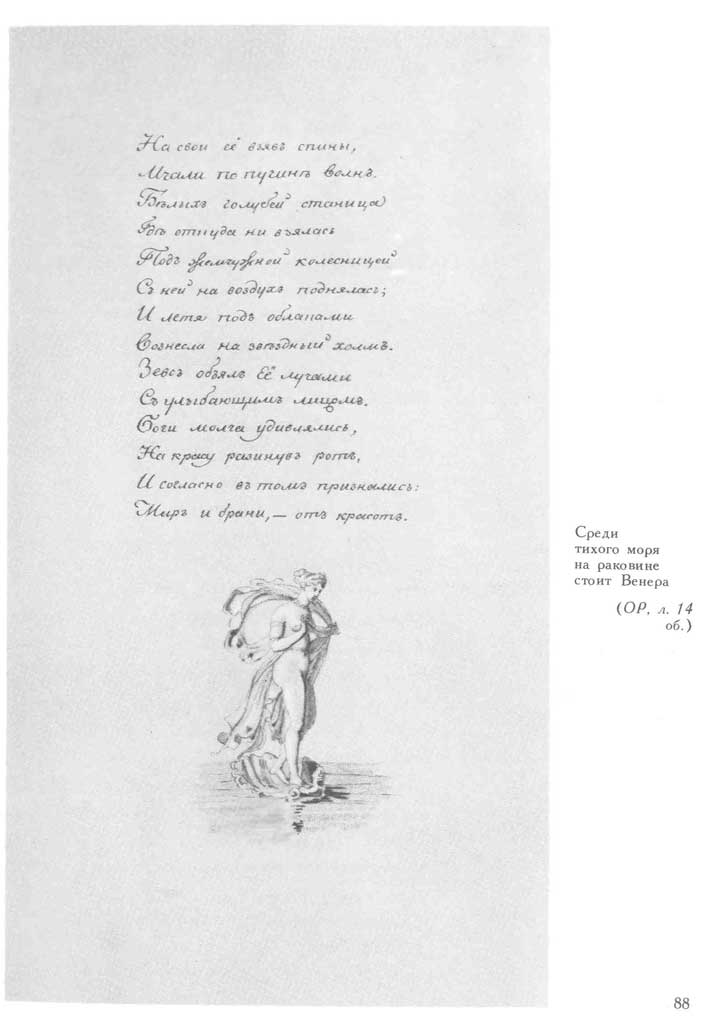 На свои её взявъ спины,
Мчали по пучинѣ волнъ.
Бѣлыхъ голубей станица
Гдѣ откуда ни взялась
Подъ жемчужной колесницей
Съ ней на воздухъ поднялась;
И летя подъ облаками
Вознесла на звѣздный холмъ.
Зевсъ обнялъ Её лучами
Съ улыбающимъ лицомъ.
Боги молча удивлялись,
На красу разинувъ ротъ,
И согласно въ томъ признались:
Миръ и брани, — отъ красотъ.
Среди
тихого моря
на раковине
стоит Венера
(ОР, л. 14
об.)
88